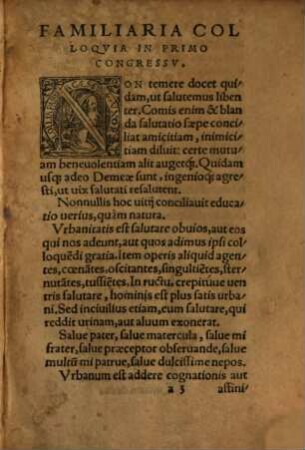 FAMILIARIA COL
LOQVIA IN PRIMO
CONGRESSV.
NON temere docet qui
dam, ut salutemus liben
ter. Comis enim & blan
da salutatio sæpe conci
liat amicitiam, inimici
tiam diluit: certe mutu
am beneuolentiam alit augetq́;. Quidam
usq; adeo Demeæ sunt, ingenioq; agre
sti, ut uix salutati resalutent.
Nonnullis hoc uitij conciliauit educa
tio uerius, quàm natura.
Vrbanitatis est salutare obuios, aut eos
qui nos adeunt, aut quos adimus ipsi col
loquēdi gratia. Item operis aliquid agen
tes, cœnātes, oscitantes, singultiētes, ster
nutātes, tussiētes. In ructu, crepitúue uen
tris salutare, hominis est plus satis urba
ni. Sed inciuilius etiam, eum salutare, qui
reddit urinam, aut aluum exonerat.
Salue pater, salue matercula, salue mi
frater, salue præceptor obseruande, salue
multū mi patrue, salue dulcissime nepos.
Vrbanum est addere cognationis aut
a 3 affini-